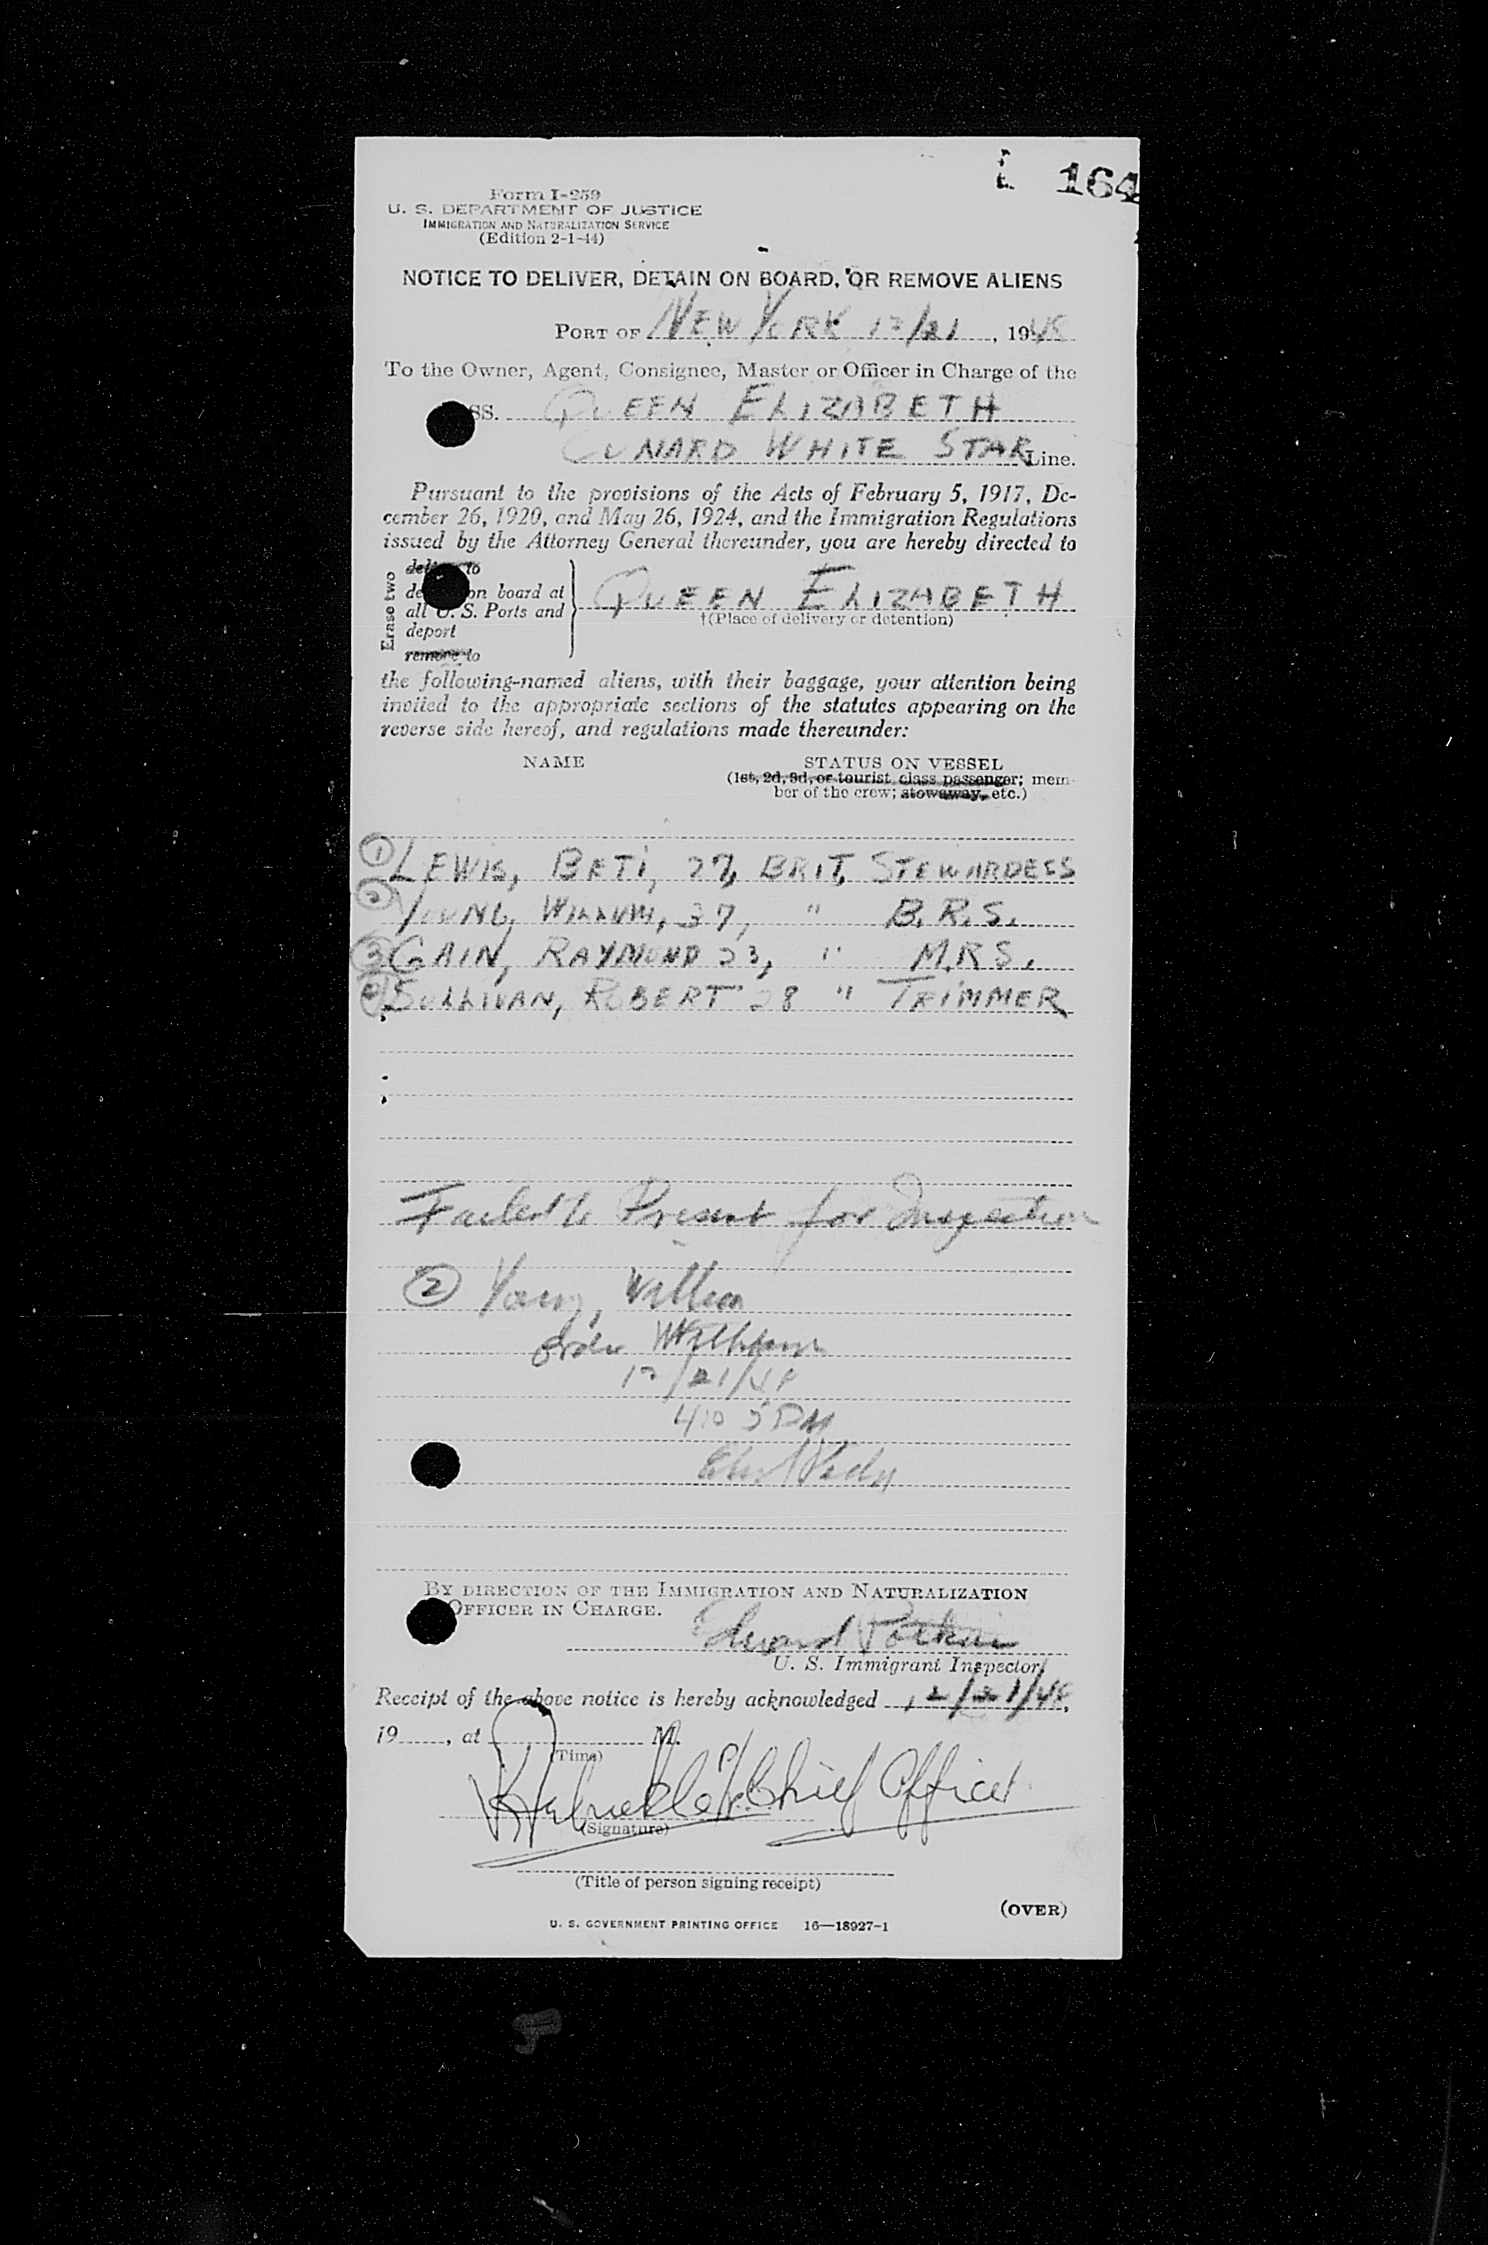 164
Form I-259
U. S. DEPARTMENT OF JUSTICE
IMMIGRATION AND NATURALIZATION SERVICE
(Edition 2-1-44)
NOTICE TO DELIVER, DETAIN ON BOARD, OR REMOVE ALIENS
PORT OF NEW YORK 12/21, 1948
To the Owner, Agent, Consignee, Master or Officer in Charge of the
SS. QUEEN ELIZABETH
CUNARD WHITE STAR Line.
Pursuant to the provisions of the Acts of February 5, 1917, De-
cember 26, 1920, and May 26, 1924, and the Immigration Regulations
issued by the Attorney General thereunder, you are hereby directed to
Erase two
deliver to
on board at
all U. S. Ports and
deport
remove to
QUEEN ELIZABETH
†(Place of delivery or detention)
the following-named aliens, with their baggage, your attention being
invited to the appropriate sections of the statutes appearing on the
reverse side hereof, and regulations made thereunder:
NAME STATUS ON VESSEL
(1st, 2d, 3d, or tourist class passenger; mem-
ber of the crew; stowaway, etc.)
1 LEWIS, BETI, 27, BRIT, STEWARDESS
2 YOUNG, WILLIAM, 37, " B.R.S.
3 GAIN, RAYMOND 23, " M.R.S.
SULLIVAN, ROBERT 28 " TRIMMER
Failed to Present for Inspection
2 Young, William
order
12/21/48
4:05 PM
BY DIRECTION OF THE IMMIGRATION AND NATURALIZATION
OFFICER IN CHARGE.
Edward
U. S. Immigrant Inspector
Receipt of the above notice is hereby acknowledged 12/21/48,
19, at M.
(Time)
Chief Officer
(Signature)
(Title of person signing receipt)
(OVER)
U. S. GOVERNMENT PRINTING OFFICE 16—18927-1